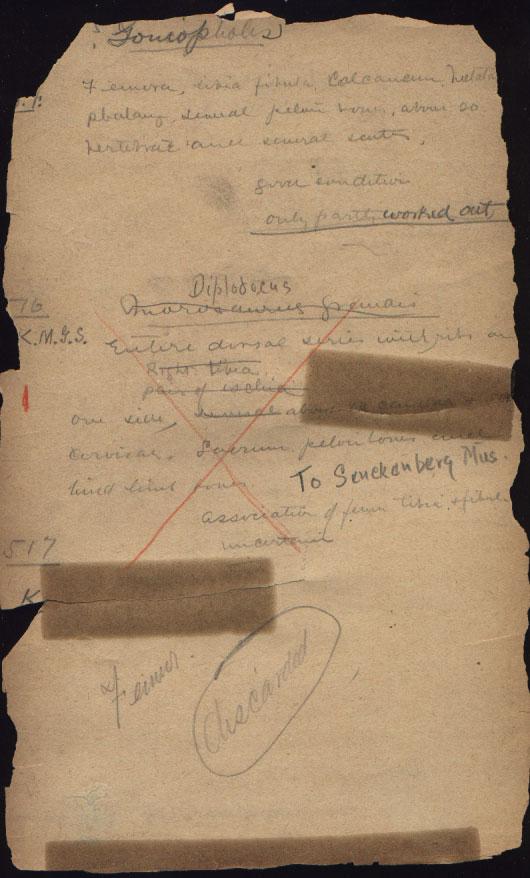 ? Goniopholis
Femora, tibia fibula, Calcaneum, Metata
phalanx, several pelvic bones, about 20
Vertebrae and several scutes,
good condition
only partly worked out
Diplodocus
76 Morosaurus grandis
K.M.G.S. Entire dorsal series with ribs on
Right tibia
pair of ischia
one side, several about 12 caudals
cervicals. Sacrum, pelvic bones and
To Senckenberg Mus.
hind limb bones
association of femur tibia & fibula
uncertain
517
K
Femur.
discarded